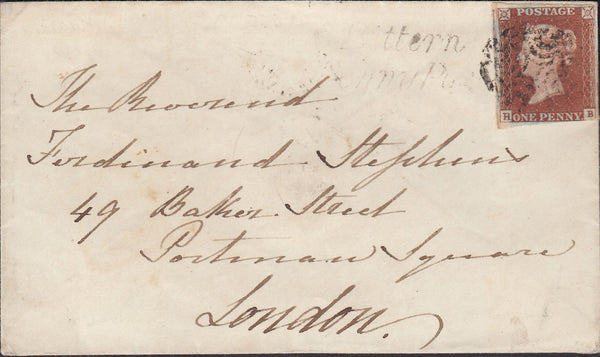 POSTAGE
H ONE PENNY B
ttern
The Reverend
Ferdinand Stephens
49 Baker Street
Portman Square
London.